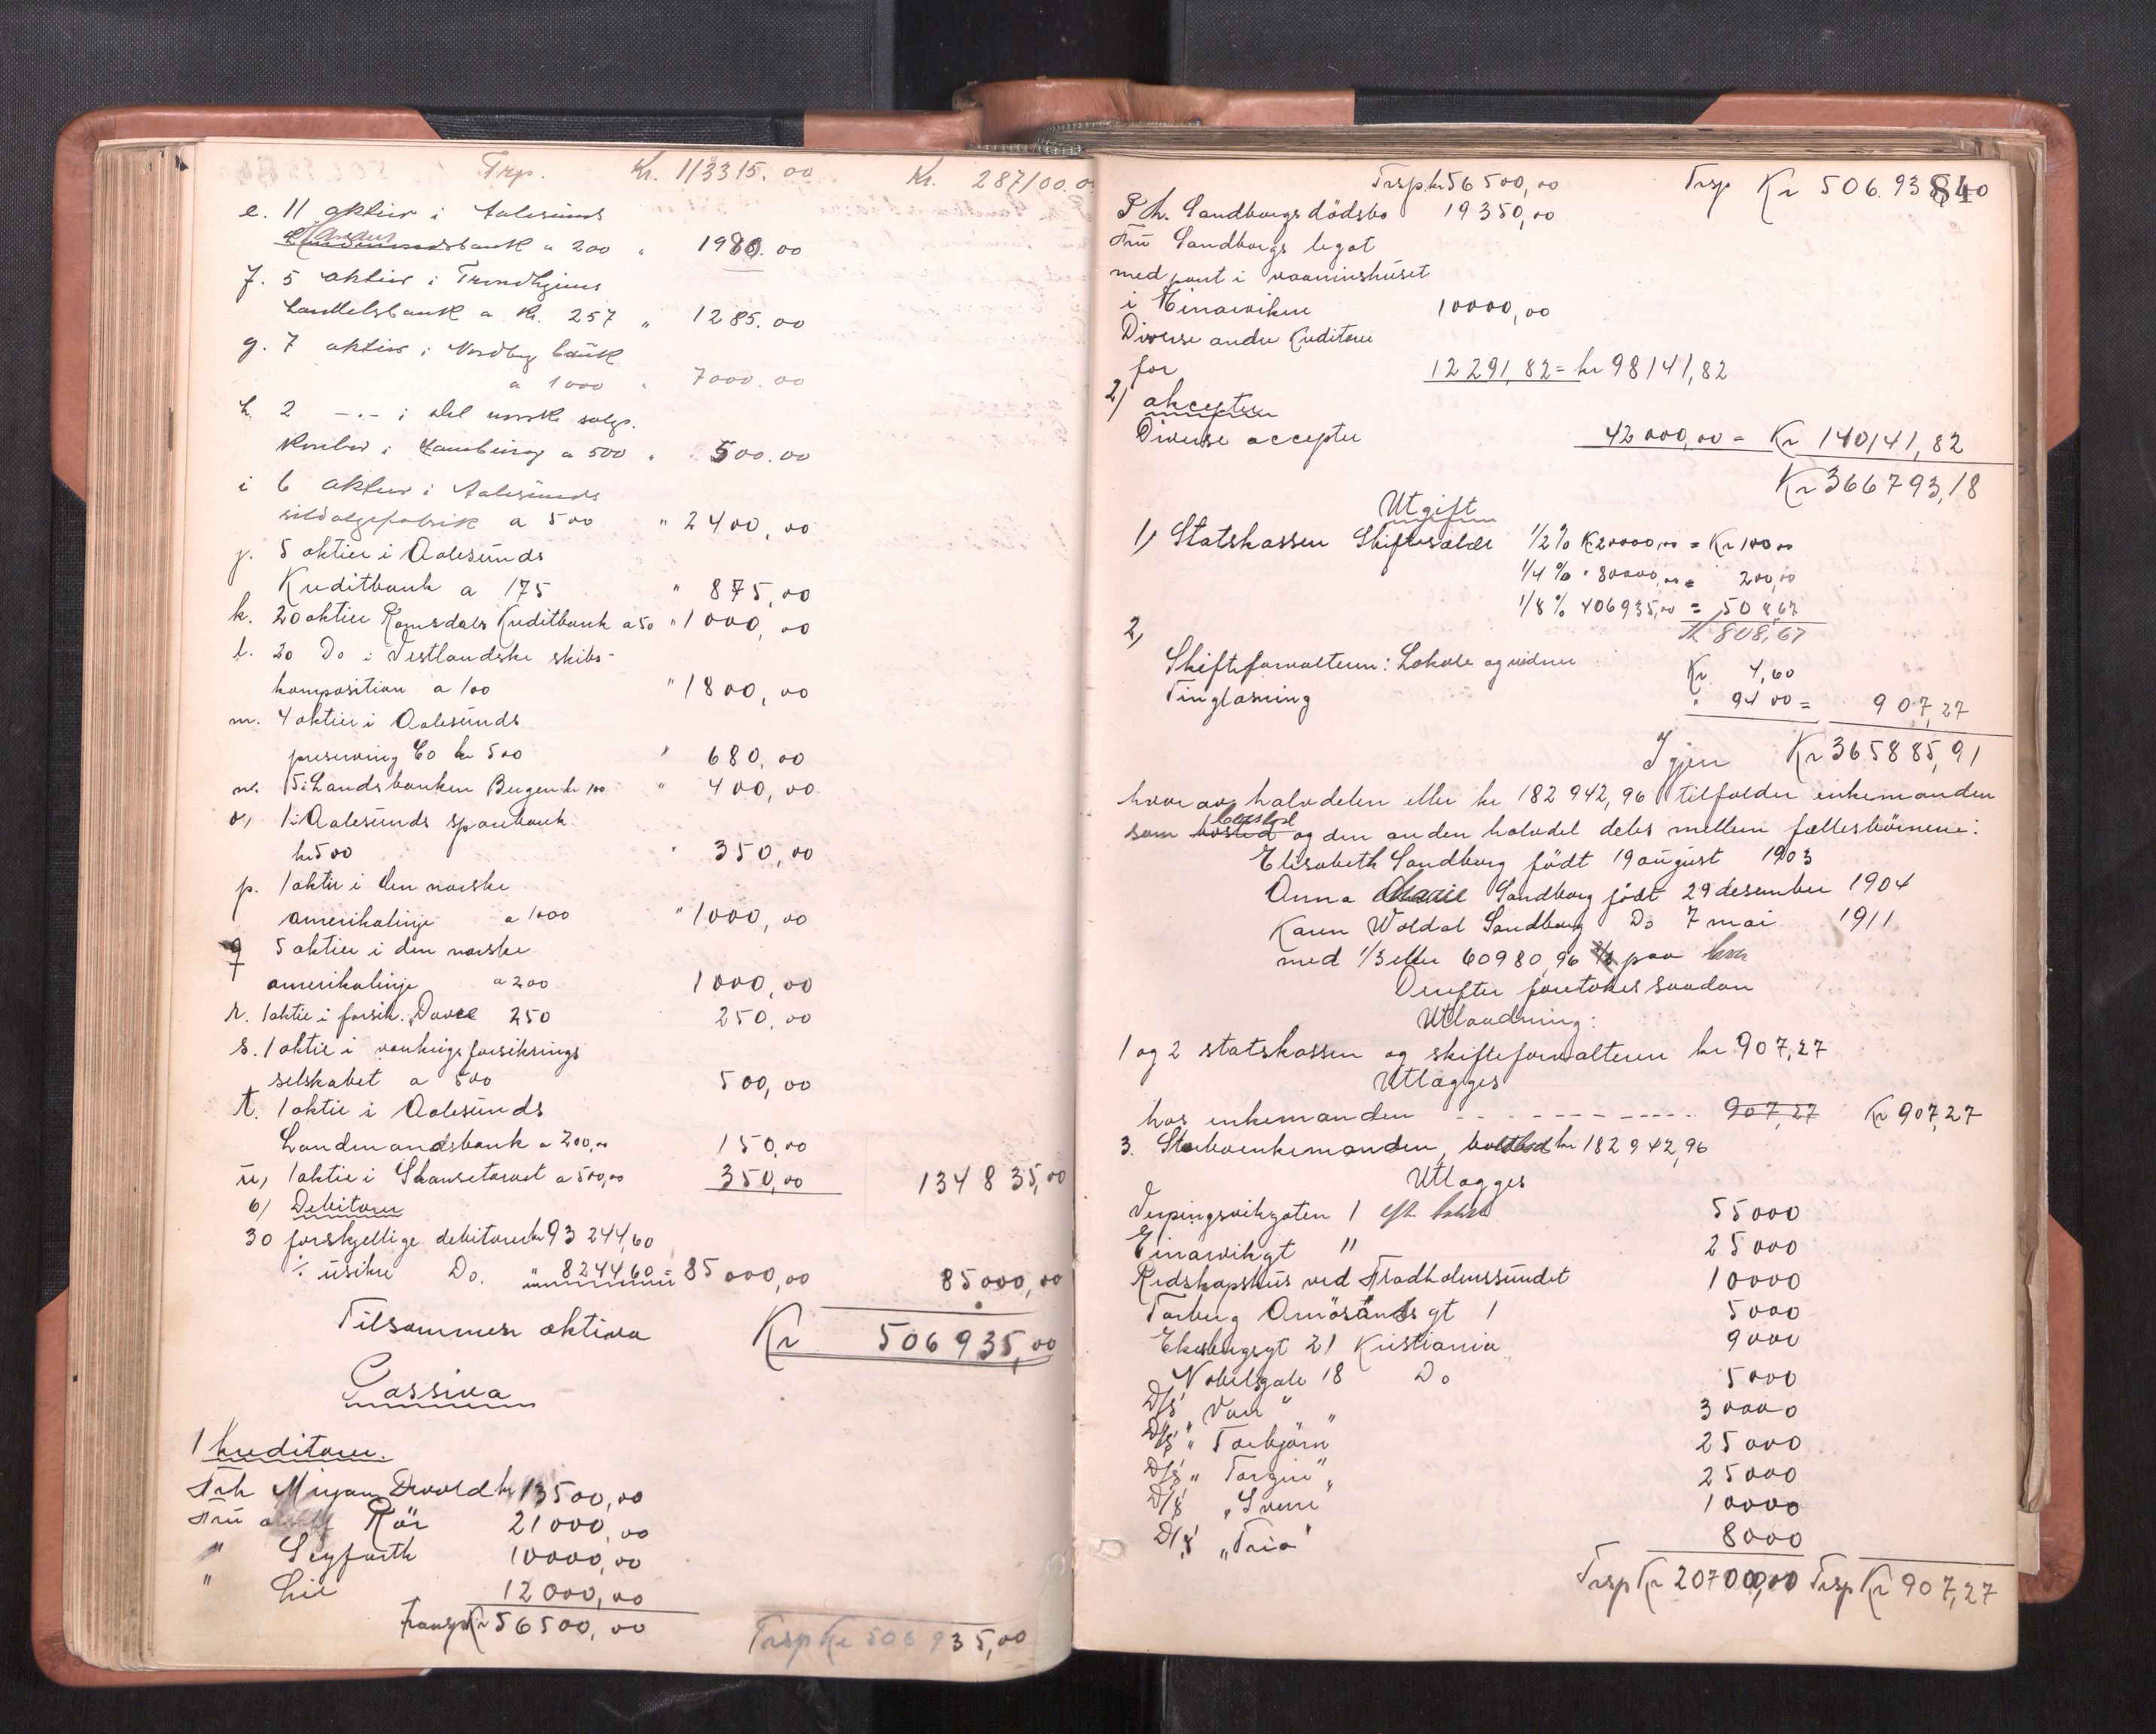 Trp. Kr. 113315.00 Kr. 287100.00
e. 11 aktier i Aalesunds
bank a 200 " 1980.00
f. 5 aktier i Trondhjems
Handelsbank a Kr. 257 " 1285.00
g. 7 aktier i Nordberg bank
a 1000 " 7000.00
h. 2 -.- i Det norske salgs.
kontor i Hamburg a 500 " 500.00
i 6 aktier i Aalesunds
sildolgefabrik a 500 " 2400,00
j. 5 aktier i Aalesunds
Kreditbank a 175 " 875,00
k. 20 aktier Romsdals Kreditbank a 50 " 1000,00
l. 20 Do i Vestlandske skibs-
komposition a 100 " 1800,00
m. 4 aktier i Aalesunds
preserving Co kr 500 " 680,00
n. 5 i Landsbanken Bergen kr 100 " 400,00
o, 1 i Aalesunds sparebank
kr 500 " 350,00
p. 1 aktie i den norske
amerikalinje a 1000 " 1000,00
q 5 aktier i den norske
amerikalinje a 200 1000,00
r. 1 aktie i forsik. "Dovre 250 250,00
s. 1 aktie i forsikrings
selskabet a 500 500,00
t. 1 aktie i Aalesunds
Landmandsbank a 200,00 150,00
u, 1 aktie i Skansetorvet a 500,00 350,00 134 835,00
6) Debitorer
30 forskjellige debitorer kr 93 244,60
÷ usikre Do. " 8244,60 = 85 000,00 85000,00
Tilsammen aktiva Kr 506 935,00
Passiva
1 Kreditorer.
Frk Mirjam Devold kr 13500,00
Fru Rör 21000,00
" Seyfarth 10000,00
" Lie 12000,00
Transp Kr 56500,00 Trsp Kr 506 935,00
Trsp. kr 56500,00 Trsp Kr 506.935,00 84
P. h. Sandborgs dödsbo 19350,00
Fru Sandborgs legat
med pant i vaaningshuset
i Einarviken 10000,00
Diverse andre Kreditorer
for 12291,82 = kr 98141,82
2) akcepter
Diverse accepter 42000,00 = Kr 140141,82
Kr 366793,18
Utgift
1) Statskassen Skiftesalær 1/2% K 20000,00 = Kr 100,00
1/4% " 80000,00 = 200,00
1/8% 406935,00 = 508,67
Kr 808,67
2, Skifteforvalteren: Lokale og vidner Kr. 4,60
Tinglæsning " 94 00 = 907,27
Igjen Kr 365885,91
hvor av halvdelen eller kr 182 942,96 tilfalder enkemanden
som boslod og den anden halvdel deles mellem fællesbörnene:
Elisabeth Sandborg födt 19 august 1903
Anna Marie Sandborg födt 29 desember 1904
Karen Woldal Sandborg Do 7 mai 1911
med 1/3 eller 60980,96 paa hver
Derefter foretokes saadan
Utlodning:
1 og 2 statskassen og skifteforvalteren kr 907,27
Utlægges
hos enkemanden - - - - - - - - - 907,27 Kr 907,27
3. Sterboenkemanden, boslod kr 182942,96
Utlægges
Verpingsvikgaten 1 55000
Einarvikgt " 25000
Redskapshus ved Fladholmssundet 10000
Torberg Arnösöns gt 1 5000
Ekebergsgt 21 Kristiania 9000
Nobelsgate 18 Do 5000
D/S "Vaar" 30000
D/S " Torbjörn" 25000
D/S " Torgeir" 25000
D/S "Sverre" 10000
D/S "Trio" 8000
Trsp Kr 207000,00 Trsp Kr 907,27